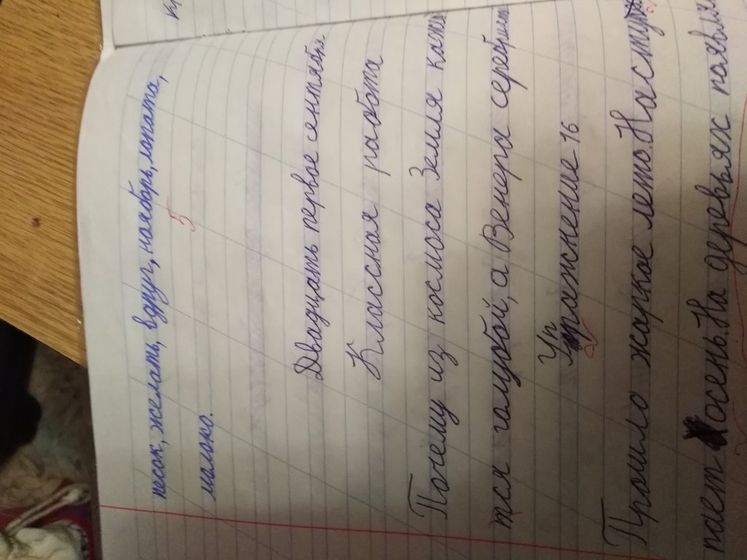 песок, желать, вдруг, ноябрь, лопата,
молоко.
5
Двадцать первое сентября
Классная работа
Почему из космоса Земля кажа
тся голубой, а Венера серебристо
Упражнение 16
Прошло жаркое лето. Насту
пает осень. На деревьях появил